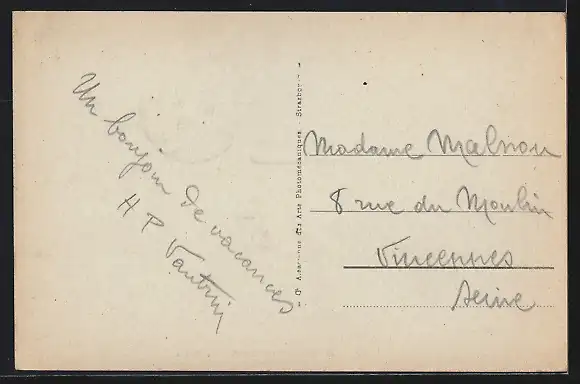 Un bonjour de vacances
H P Vautrin
Cie Alsacienne des Arts Photomécaniques - Strasbourg
Madame Malnou
8 rue du Moulin
Vincennes
Seine